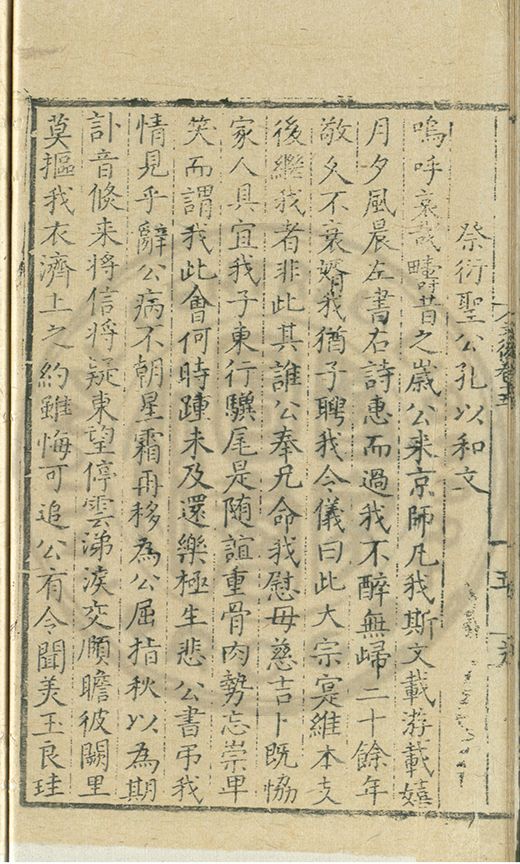 祭衍聖公孔以和文
嗚呼哀哉疇昔之歲公来京師凡我斯文載游載嬉
月夕風晨左書右詩惠而過我不醉無歸二十餘年
敬久不衰婿我猶子聘我令儀曰此大宗寔維本支
後繼我者非此其誰公奉兄命我慰母慈吉卜既恊
家人具宜我子東行驥尾是随誼重骨肉勢忘崇卑
笑而謂我此會何時踵未及還樂極生悲公書弔我
情見乎辭公病不朝星霜再移為公屈指秋以為期
訃音倏来將信將疑東望停雲涕淚交頤瞻彼闕里
莫摳我衣濟上之約雖悔可追公有令聞美玉良珪